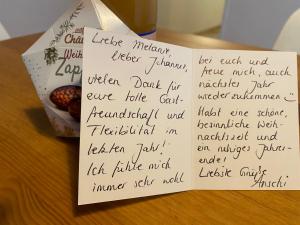 Liebe Melanie,
lieber Johannes,
vielen Dank für
eure tolle Gast-
freundschaft und
Flexibilität im
letzten Jahr!
Ich fühle mich
immer sehr wohl
bei euch und
freue mich, auch
nächstes Jahr
wiederzukommen :)
Habt eine schöne,
besinnliche Weih-
nachtszeit und
ein ruhiges Jahres-
ende!
Liebste Grüße
Anschi
Weih
Zap